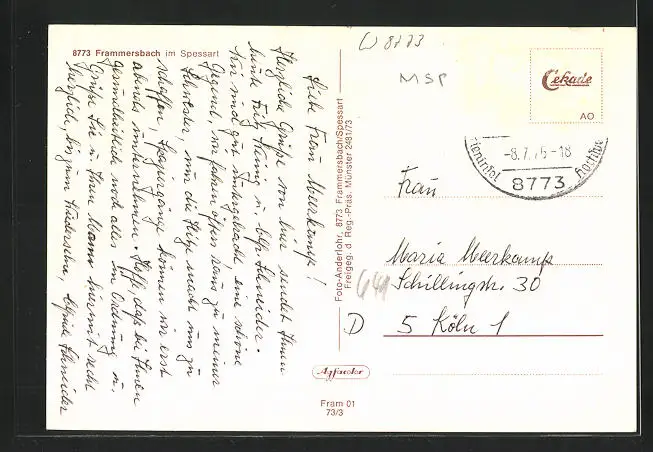 8773 Frammersbach im Spessart
Liebe Frau Meerkamp!
Herzliche Grüße von hier sendet Ihnen
heute Fritz, Heinz u. Elfg. Schneider.
Wir sind gut untergebracht, eine schöne
Gegend, wir fahren öfters rauf zu meiner
Schwester, nur die Hitze macht uns zu
schaffen. Spaziergänge können wir erst
abends unternehmen. Hoffe, daß bei Ihnen
gesundheitlich noch alles in Ordnung u.
Grüße Sie u. Ihren Mann hiermit recht
herzlich, bis zum Wiedersehn, Schneider
Foto-Anderlohr, 8773 Frammersbach/Spessart
Freigeg. d. Reg.-Präs. Münster 2481/73
Agfacolor
Fram 01
73/3
W 8773
MSP
Cekade
AO
-8.7.75-18
8773
Frau
Maria Meerkamp
Schillingstr. 30
D 5 Köln 1